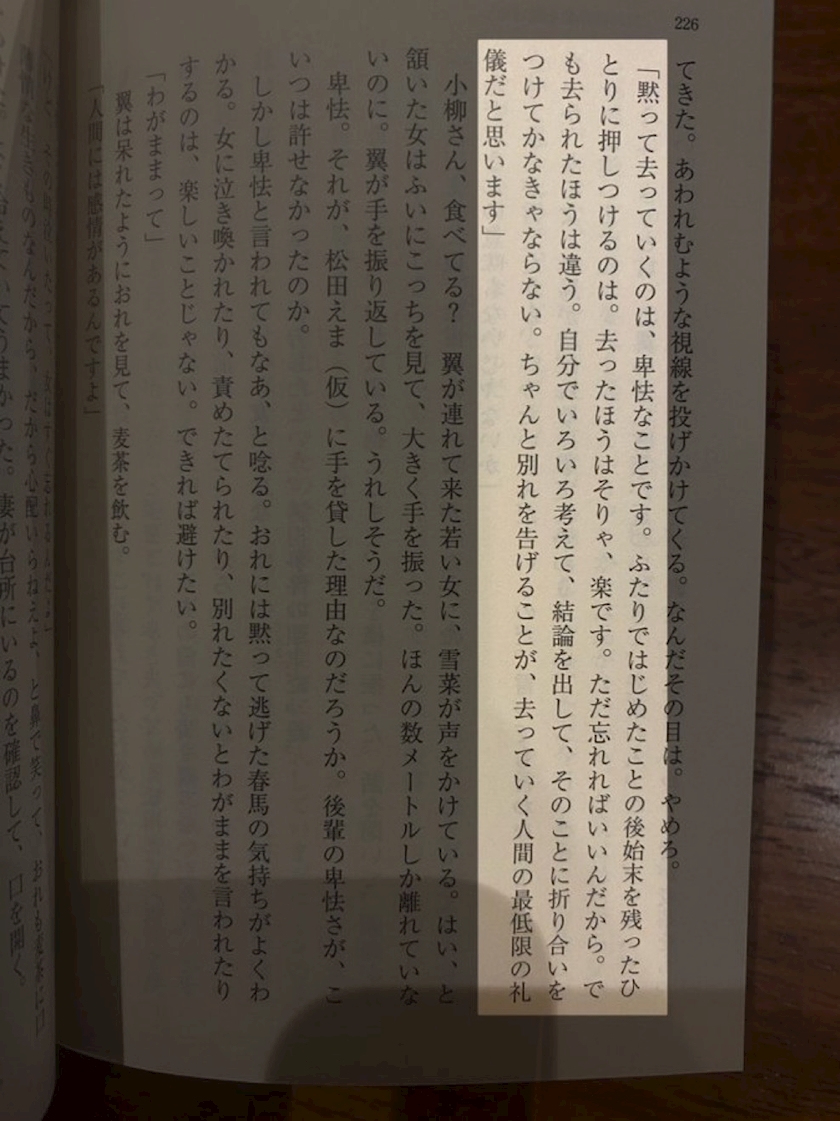 226
てきた。あわれむような視線を投げかけてくる。なんだその目は。やめろ。
「黙って去っていくのは、卑怯なことです。ふたりではじめたことの後始末を残ったひ
とりに押しつけるのは。去ったほうはそりゃ、楽です。ただ忘れればいいんだから。で
も去られたほうは違う。自分でいろいろ考えて、結論を出して、そのことに折り合いを
つけてかなきゃならない。ちゃんと別れを告げることが、去っていく人間の最低限の礼
儀だと思います」
小柳さん、食べてる？　翼が連れて来た若い女に、雪菜が声をかけている。はい、と
頷いた女はふいにこっちを見て、大きく手を振った。ほんの数メートルしか離れていな
いのに。翼が手を振り返している。うれしそうだ。
卑怯。それが、松田えま（仮）に手を貸した理由なのだろうか。後輩の卑怯さが、こ
いつは許せなかったのか。
しかし卑怯と言われてもなあ、と唸る。おれには黙って逃げた春馬の気持ちがよくわ
かる。女に泣き喚かれたり、責めたてられたり、別れたくないとわがままを言われたり
するのは、楽しいことじゃない。できれば避けたい。
「わがままって」
翼は呆れたようにおれを見て、麦茶を飲む。
「人間には感情があるんですよ」
生きものなんだから、だから心配いらねえよ、と鼻で笑って、おれも麦茶に口
うまかった。妻が台所にいるのを確認して、口を開く。